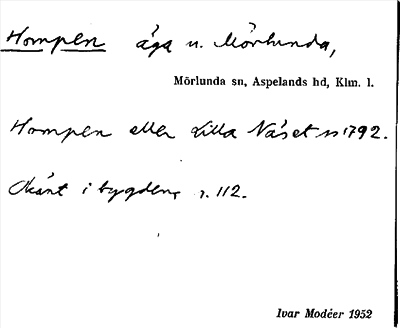 Hompen äga u. Mörlunda,
Mörlunda sn, Aspelands hd, Klm. l.
Hompen eller Lilla Näset ns 1792.
Okänt i bygden, s. 112.
Ivar Modéer 1952